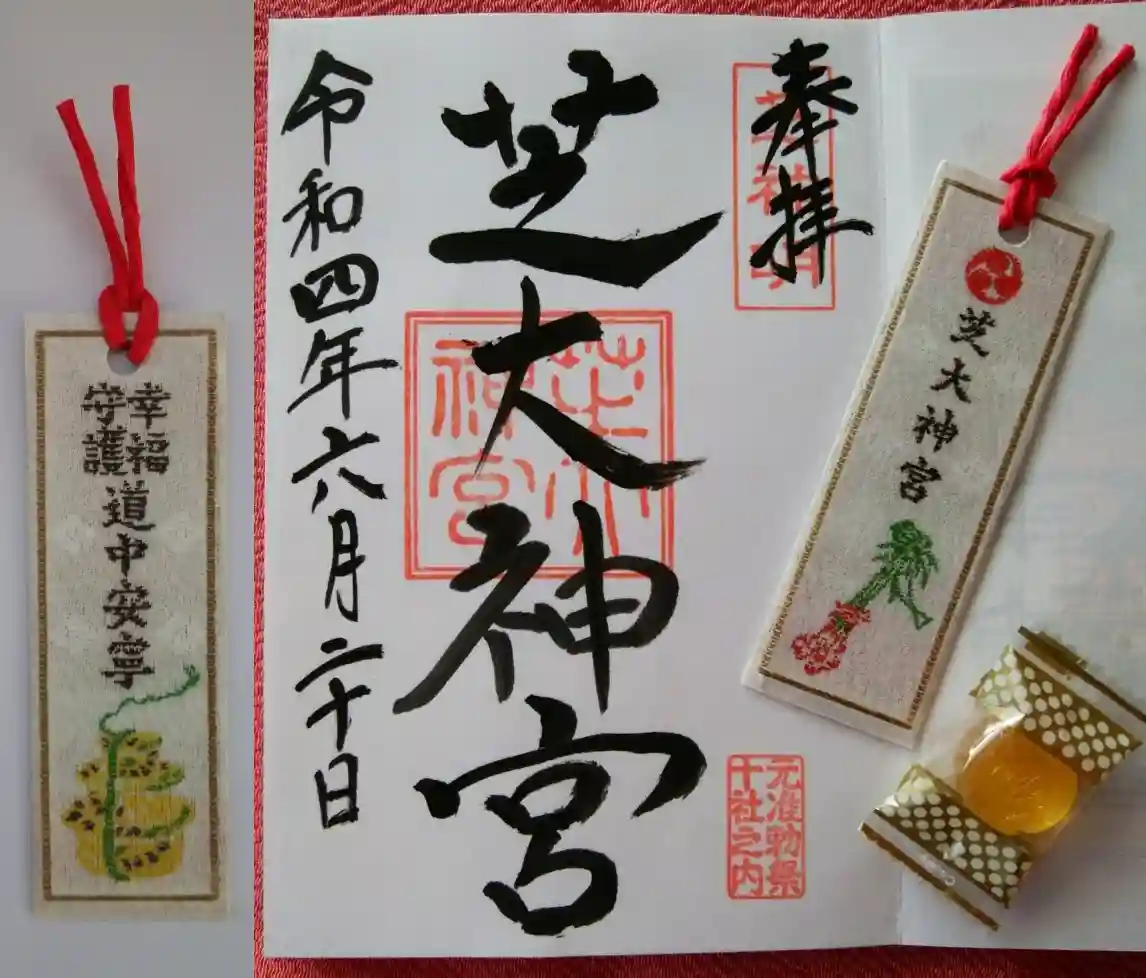 幸福
守護
道中安寧
奉拝
芝神明
芝大神宮
芝大
神宮
令和四年六月二十日
元准勅祭
十社之内
芝大神宮